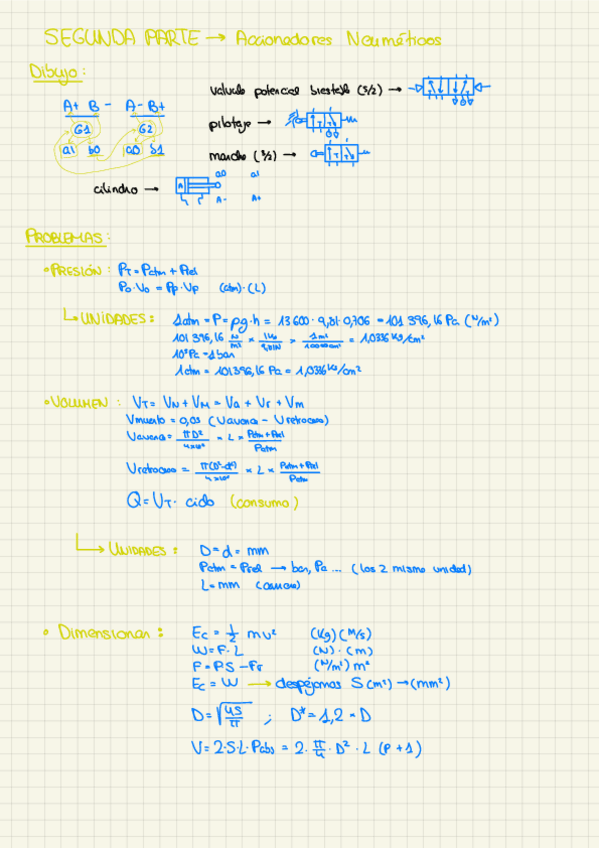 SEGUNDA PARTE → Accionadores Neumáticos
Dibujo:
valvula potencial biestable (5/2) →
A+ B- A- B+
G1 G2
pilotaje →
a1 b0 a0 b1
marcha (3/2) →
cilindro →
A
a0 a1
A- A+
PROBLEMAS:
•PRESIÓN: PT = Patm + Prel
P0·V0 = Pp·Vp (atm)·(L)
↳ UNIDADES: 1atm = P = ρg·h = 13600·9,81·0,706 = 101396,16 Pa (N/m²)
101 396,16 N/m² × 1kg/9,81N × 1m²/10000cm² = 1,0336 kg/cm²
10⁵Pa = 1bar
1atm = 101396,16 Pa = 1,0336 kg/cm²
•VOLUMEN: VT = VN + VM = Va + Vr + Vm
Vmuerto = 0,03 (Vavance - Vretroceso)
Vavance = πD²/4×10⁶ × L × Patm+Prel/Patm
Vretroceso = π(D²-d²)/4×10⁶ × L × Patm+Prel/Patm
Q = VT· ciclo (consumo)
↳ UNIDADES: D = d = mm
Patm = Prel → bar, Pa... (los 2 misma unidad)
L = mm (carrera)
• Dimensionar: Ec = 1/2 mv² (kg) (m/s)
W = F·L (N)·(m)
F = PS - Fr (N/m²) m²
Ec = W → despejamos S(m²) → (mm²)
D = √4S/π ; D* = 1,2 × D
V = 2·S·L·Pabs = 2· π/4 · D² · L (P+1)